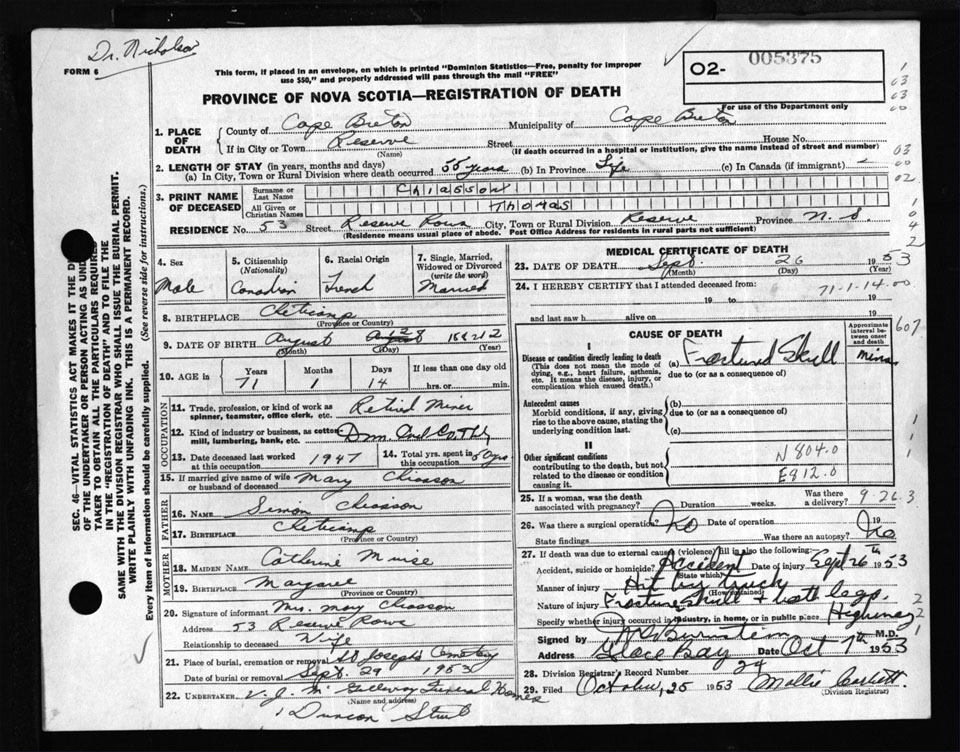 Dr. Nicholson
FORM 6
This form, if placed in an envelope, on which is printed "Dominion Statistics—Free, penalty for improper
use $50," and properly addressed will pass through the mail "FREE"
PROVINCE OF NOVA SCOTIA—REGISTRATION OF DEATH
02- 005375
For use of the Department only
1. PLACE OF DEATH
County of Cape Breton Municipality of Cape Breton
If in City or Town Reserve Street House No.
(Name) (If death occurred in a hospital or institution, give the name instead of street and number)
2. LENGTH OF STAY (in years, months and days)
(a) In City, Town or Rural Division where death occurred 55 years (b) In Province Life (c) In Canada (if immigrant) -
3. PRINT NAME OF DECEASED
Surname or Last Name Chiasson
All Given or Christian Names Thomas
RESIDENCE No. 53 Street Reserve Rows City, Town or Rural Division Reserve Province N. S.
(Residence means usual place of abode. Post Office Address for residents in rural parts not sufficient)
SEC. 46—VITAL STATISTICS ACT MAKES IT THE
OF THE UNDERTAKER OR PERSON ACTING AS
TAKER TO OBTAIN ALL THE PARTICULARS REQUIRED
IN THE "REGISTRATION OF DEATH" AND TO FILE THE
SAME WITH THE DIVISION REGISTRAR WHO SHALL ISSUE THE BURIAL PERMIT.
WRITE PLAINLY WITH UNFADING INK. THIS IS A PERMANENT RECORD.
Every item of information should be carefully supplied. (See reverse side for instructions.)
4. Sex
Male
5. Citizenship
(Nationality)
Canadian
6. Racial Origin
French
7. Single, Married,
Widowed or Divorced
(write the word)
Married
8. BIRTHPLACE Cheticamp
(Province or Country)
9. DATE OF BIRTH August 28
(Month) (Day) (Year)
10. AGE in
Years Months Days If less than one day old
71 1 14 hrs. or min.
OCCUPATION
11. Trade, profession, or kind of work as
spinner, teamster, office clerk, etc. Retired Miner
12. Kind of industry or business, as cotton
mill, lumbering, bank, etc. Dom. Coal Co.
13. Date deceased last worked
at this occupation 1947
14. Total yrs. spent in
this occupation 50 yrs
15. If married give name of wife
or husband of deceased Mary Chiasson
FATHER
16. NAME Simon Chiasson
17. BIRTHPLACE Cheticamp
(Province or Country)
MOTHER
18. MAIDEN NAME Catherine Muise
19. BIRTHPLACE Margaree
(Province or Country)
20. Signature of informant Mrs. Mary Chiasson
Address 53 Reserve Rows
Relationship to deceased Wife
21. Place of burial, cremation or removal St Josephs Cemetery
Date of burial or removal Sept. 29 1953
22. UNDERTAKER Funeral Homes
(Name and address)
Duncan Street
MEDICAL CERTIFICATE OF DEATH
23. DATE OF DEATH Sept. 26 1953
(Month) (Day) (Year)
24. I HEREBY CERTIFY that I attended deceased from:
71-1-14.00
19 to 19
and last saw h alive on 19
CAUSE OF DEATH
Approximate
interval be-
tween onset
and death
607
I
Disease or condition directly leading to death
(This does not mean the mode of
dying, e.g., heart failure, asthenia,
etc. It means the disease, injury, or
complication which caused death.)
(a) Fractured Skull mins
due to (or as a consequence of)
Antecedent causes
Morbid conditions, if any, giving
rise to the above cause, stating the
underlying condition last.
(b)
due to (or as a consequence of)
(c)
II
Other significant conditions
contributing to the death, but not
related to the disease or condition
causing it.
N804.0
E812.0
25. If a woman, was the death
associated with pregnancy? Duration weeks. Was there
a delivery?
9-26.3
26. Was there a surgical operation? No Date of operation 19
State findings Was there an autopsy? No
27. If death was due to external causes (violence) fill in also the following:
Accident, suicide or homicide? Accident Date of injury Sept 26th 1953
(State which)
Manner of injury Hit by truck
(How sustained)
Nature of injury Fracture skull + both legs.
Specify whether injury occurred in industry, in home, or in public place Highway
Signed by Burnstein M.D.
Address Glace Bay Date Oct 7th 1953
28. Division Registrar's Record Number 24
29. Filed October, 25 1953 Mollie
(Division Registrar)